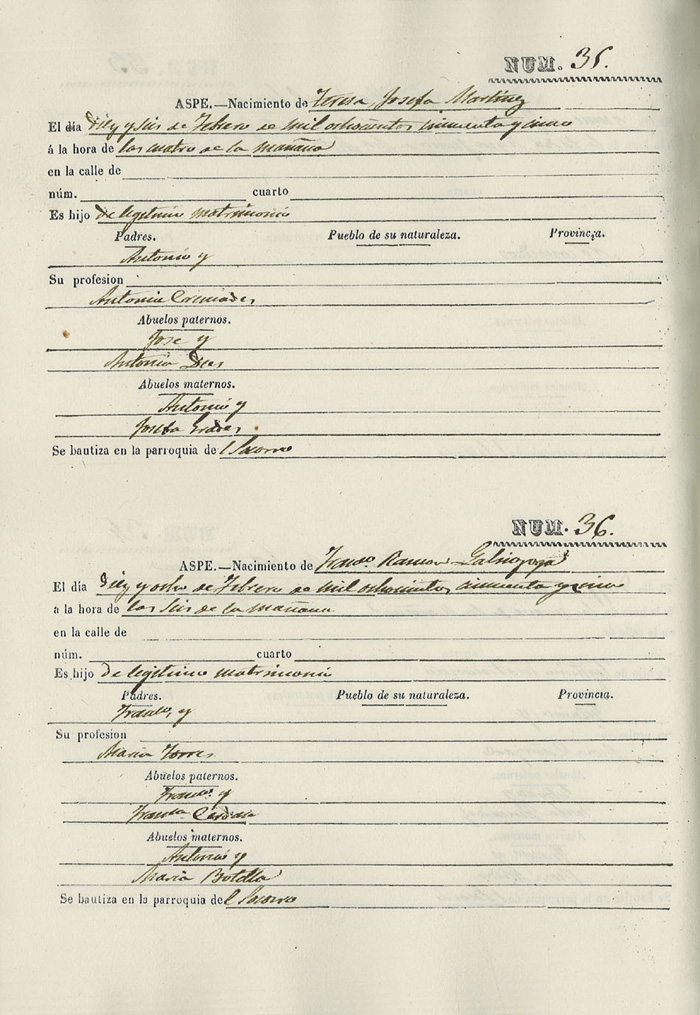 NUM. 35.
ASPE.—Nacimiento de Teresa Josefa Martinez
El dia Diez y seis de Febrero de mil ochocientos cincuenta y cinco
á la hora de las cuatro de la mañana
en la calle de
núm. cuarto
Es hijo de legitimo matrimonio
Padres. Pueblo de su naturaleza. Provincia.
Antonio y
Su profesion
Antonia Cremades
Abuelos paternos.
Jose y
Antonia
Abuelos maternos.
Antonio y
Josefa
Se bautiza en la parroquia de l Socorro
NUM. 36.
ASPE.—Nacimiento de Franco. Ramon
El dia Diez y ocho de Febrero de mil ochocientos cincuenta y cinco
á la hora de las seis de la mañana
en la calle de
núm. cuarto
Es hijo de legitimo matrimonio
Padres. Pueblo de su naturaleza. Provincia.
Franco. y
Su profesion
Maria Torres
Abuelos paternos.
Franco. y
Franca.
Abuelos maternos.
Antonio y
Maria Botella
Se bautiza en la parroquia de l Socorro